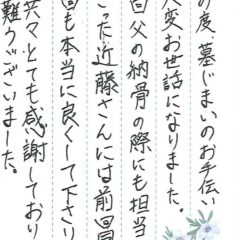 の度、墓じまいのお手伝い
大変お世話になりました。
白父の納骨の際にも担当
さった近藤さんには前回
回も本当に良くして下さり
共々とても感謝しており
難うございました。